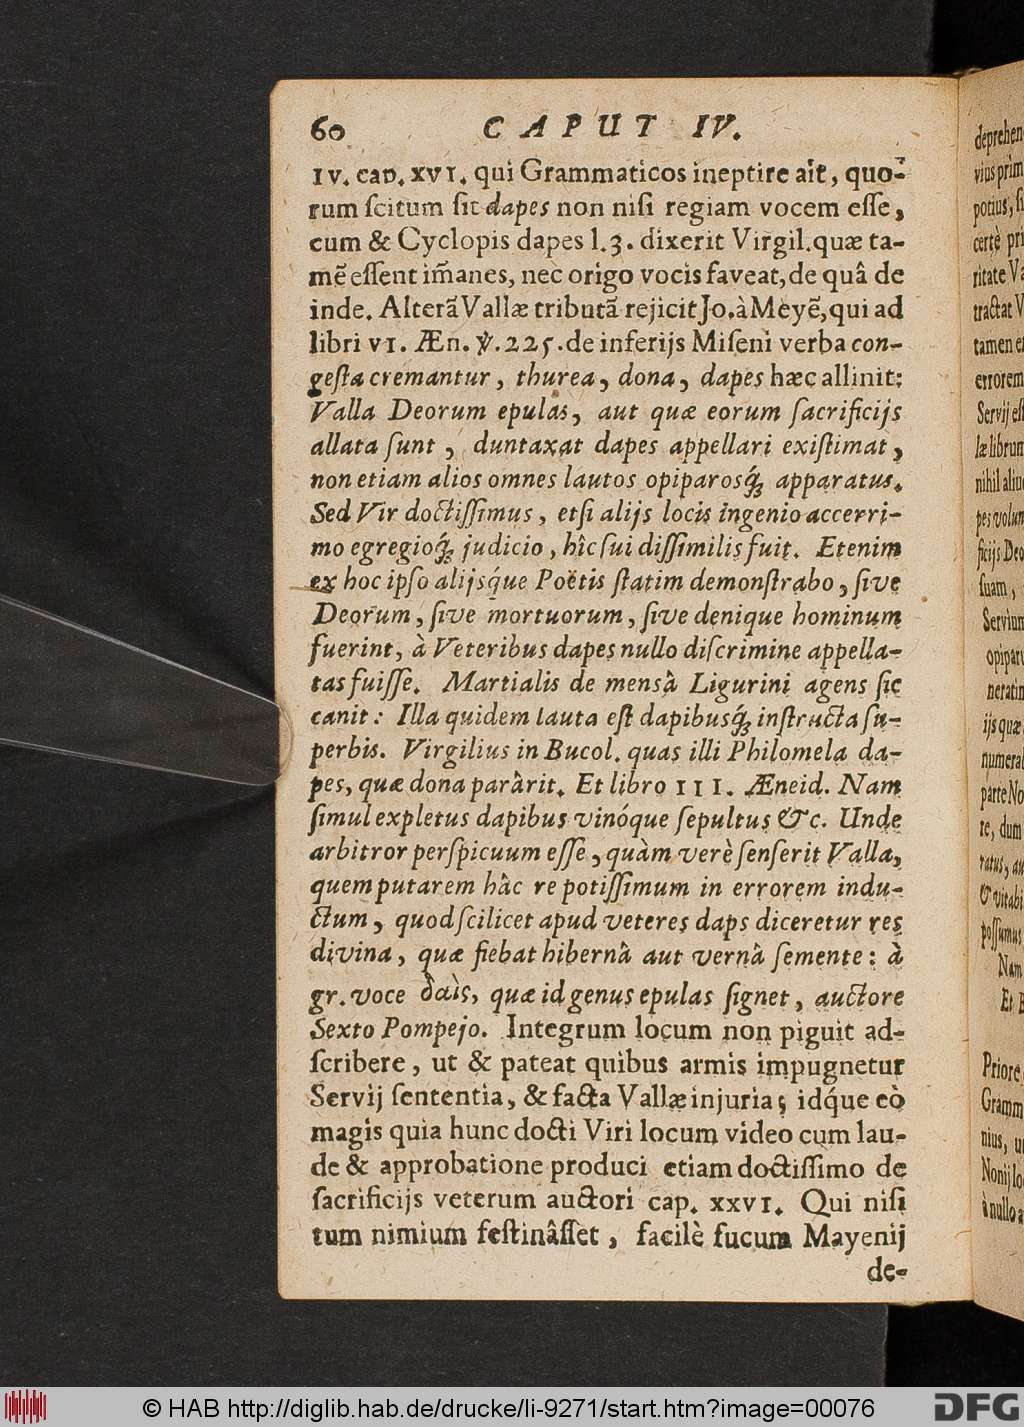 60 CAPUT IV.
IV. cap. XVI. qui Grammaticos ineptire aît, quo-
rum ſcitum ſit dapes non niſi regiam vocem eſſe,
cum & Cyclopis dapes l. 3. dixerit Virgil. quæ ta-
mẽ eſſent im̃anes, nec origo vocis faveat, de quâ de
inde. Alterã Vallæ tributã rejicit Jo. à Meyẽ, qui ad
libri VI. Æn. ℣. 225. de inferijs Miſeni verba con-
geſta cremantur, thurea, dona, dapes hæc allinit:
Valla Deorum epulas, aut quæ eorum ſacrificijs
allata ſunt, duntaxat dapes appellari exiſtimat,
non etiam alios omnes lautos opiparosq́; apparatus.
Sed Vir doctiſſimus, etſi alijs locis ingenio accerri-
mo egregioq́; judicio, hîc ſui diſſimilis fuit. Etenim
ex hoc ipſo alijsq́ue Poëtis ſtatim demonſtrabo, ſive
Deorum, ſive mortuorum, ſive denique hominum
fuerint, à Veteribus dapes nullo diſcrimine appella-
tas fuiſſe. Martialis de mensâ Ligurini agens ſic
canit: Illa quidem lauta eſt dapibusq́; inſtructa ſu-
perbis. Virgilius in Bucol. quas illi Philomela da-
pes, quæ dona parârit. Et libro III. Æneid. Nam
ſimul expletus dapibus vinóque ſepultus &c. Unde
arbitror perſpicuum eſſe, quàm verè ſenſerit Valla,
quem putarem hâc re potiſſimum in errorem indu-
ctum, quod ſcilicet apud veteres daps diceretur res
divina, quæ fiebat hibernâ aut vernâ ſemente: à
gr. voce δαὶς, quæ id genus epulas ſignet, auctore
Sexto Pompejo. Integrum locum non piguit ad-
ſcribere, ut & pateat quibus armis impugnetur
Servij ſententia, & facta Vallæ injuria; idq́ue eò
magis quia hunc docti Viri locum video cum lau-
de & approbatione produci etiam doctiſſimo de
ſacrificijs veterum auctori cap. XXVI. Qui niſi
tum nimium feſtinâſſet, facilè fucum Mayenij
de-
deprehen
vius prim
potius, ſi
certè pri
ritate Va
tractat V
tamen er
errorem
Servij eſt
læ librum
nihil aliud
pes volun
ficijs Deo
ſuam,
Servium
opiparu
neratin
ijs quæ
numeral
parte No
re, dum
ratus, au
& vitabi
poſſumus
Nam
Et E
Priore
Gramm
nius, ut
Nonij lo
à nullo a
© HAB http://diglib.hab.de/drucke/li-9271/start.htm?image=00076
DFG